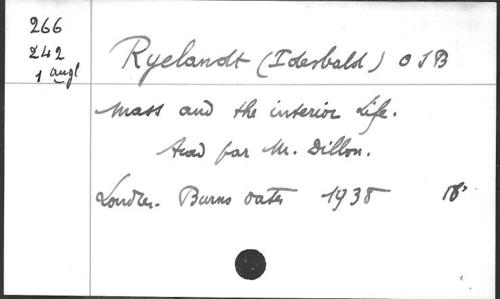 266
242
1 angl
Ryelandt (Idesbald) OSB
Mass and the interior Life.
Trad par M. Dillon.
Londres. Burns Oates 1938 18°